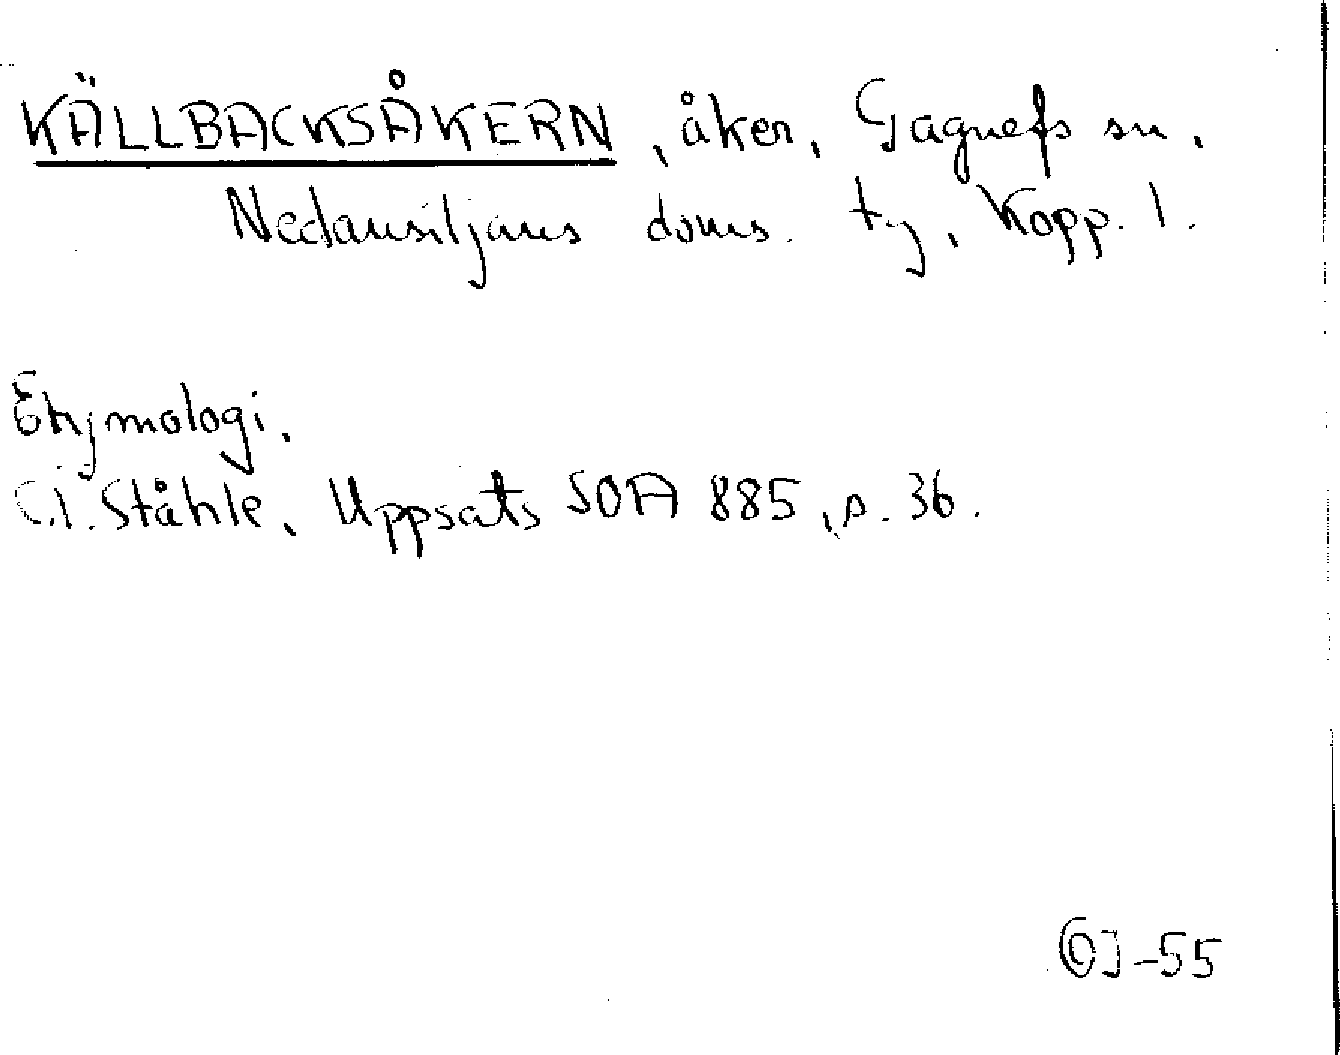 KÄLLBACKSÅKERN, åker, Gagnefs sn,
Nedansiljans doms. tg, Kopp. l.
Etymologi.
C.I. Ståhle, Uppsats SOA 885, s. 36.
-55